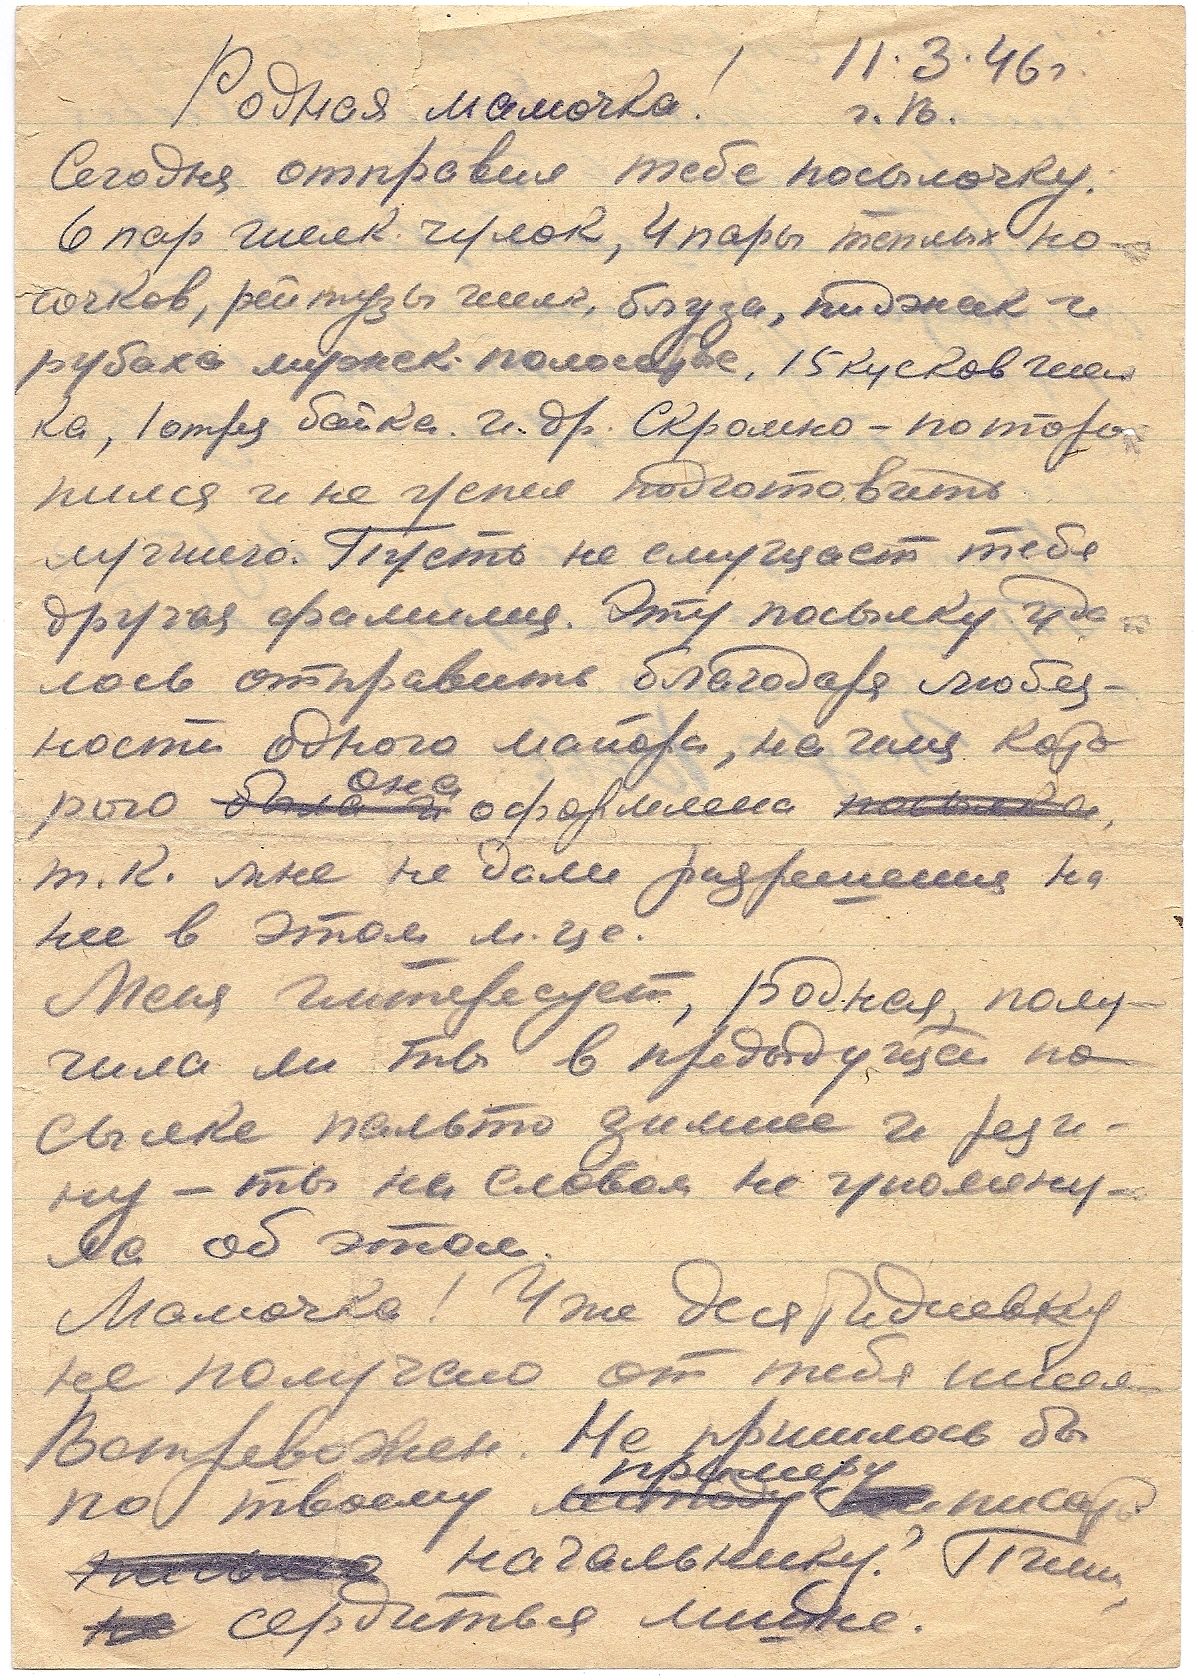 11.3.46г.
Родная мамочка! г. В.
Сегодня отправил тебе посылочку:
6 пар шелк. чулок, 4 пары теплых но-
сочков, рейтузы шелк. блуза, пиджак и
рубаха мужск. полос, 15 кусков шел
ка, 1 отрез байка. и др. Скромно – поторо
пился и не успел подготовить
лучшего. Пусть не смущает тебя
другая фамилия. Эту посылку уда-
лось отправить благодаря любез-
ности одного майора, на имя кото
рого была и она оформлена посылка,
т.к. мне не дали разрешения на
нее в этом м-це.
Меня интересует, родная, полу-
чила ли ты в предыдущей по-
сылке пальто зимнее и рези-
ну – ты ни словом не упомяну-
ла об этом.
Мамочка! Уже десятидневку
не получаю от тебя писем
Встревожен. Не пришлось бы
по твоему методу примеру писать
письмо начальнику? Пиши,
не сердиться мине.